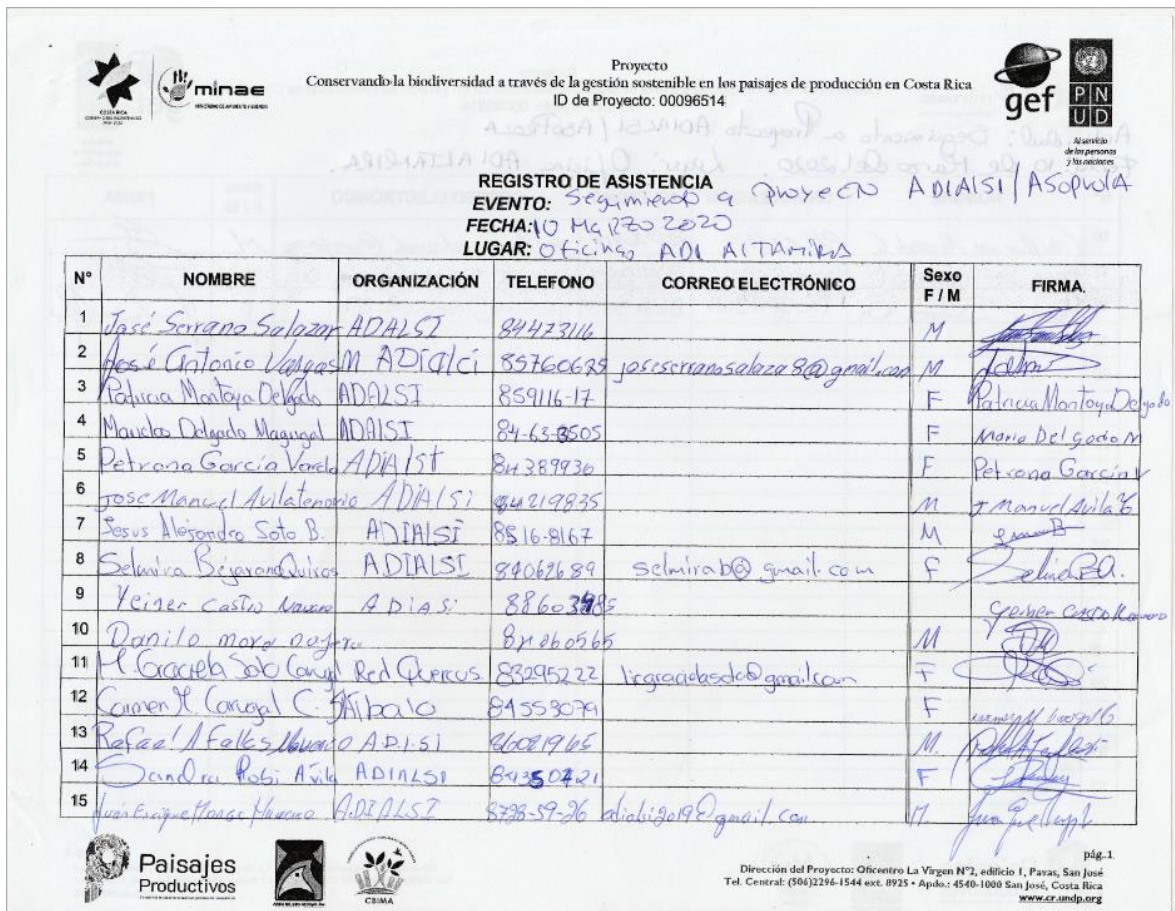 Proyecto
Conservando la biodiversidad a través de la gestión sostenible en los paisajes de producción en Costa Rica
ID de Proyecto: 00096514
minae
gef
PNUD
Al servicio de las personas y las naciones
REGISTRO DE ASISTENCIA
EVENTO: Segimiento a proyecto ADIALSI/ASOPROLA
FECHA: 10 Marzo 2020
LUGAR: Oficinas ADI ALTAMIRA
N° NOMBRE ORGANIZACIÓN TELEFONO CORREO ELECTRÓNICO Sexo F / M FIRMA.
1 José Serrano Salazar ADALSI 84473116 M
2 José Antonio Vargas M ADialci 85760625 joseserranosalaza8@gmail.com M
3 Patricia Montoya Delgado ADALSI 859116-17 F Patricia Montoya Delgado
4 Delgado ADAISI 84-63-3505 F Maria Delgado M
5 Petrona García Varela ADIAlSI 84389936 F Petrona García V
6 Jose Manuel Avilatenorio ADIAlSi 84219835 M J Manuel Avila
7 Jesus Alejandro Soto B. ADIAlSI 8516-8167 M
8 Selmira Bejarano Quiros ADIALSI 84062689 selmirab@gmail.com F Selmira B.Q.
9 Yeiner Castro Navarro ADiASi Yeiner Castro Navarro
10 Danilo mora 84060565 M
11 M. Graciela Soto Red Quercus 83295222 F
12 Carmen M. C. 84553079 F
13 Rafael A A.D.I.SI 86021965 M.
14 Sandra Avila ADIALSI F
15 Juan Enrique ADIALSI 8728-59-26 adialsi2019@gmail.com M.
Paisajes
Productivos
CBIMA
pág.1
Dirección del Proyecto: Oficentro La Virgen N°2, edificio 1, Pavas, San José
Tel. Central: (506)2296-1544 ext. 8925 • Apdo.: 4540-1000 San José, Costa Rica
www.cr.undp.org